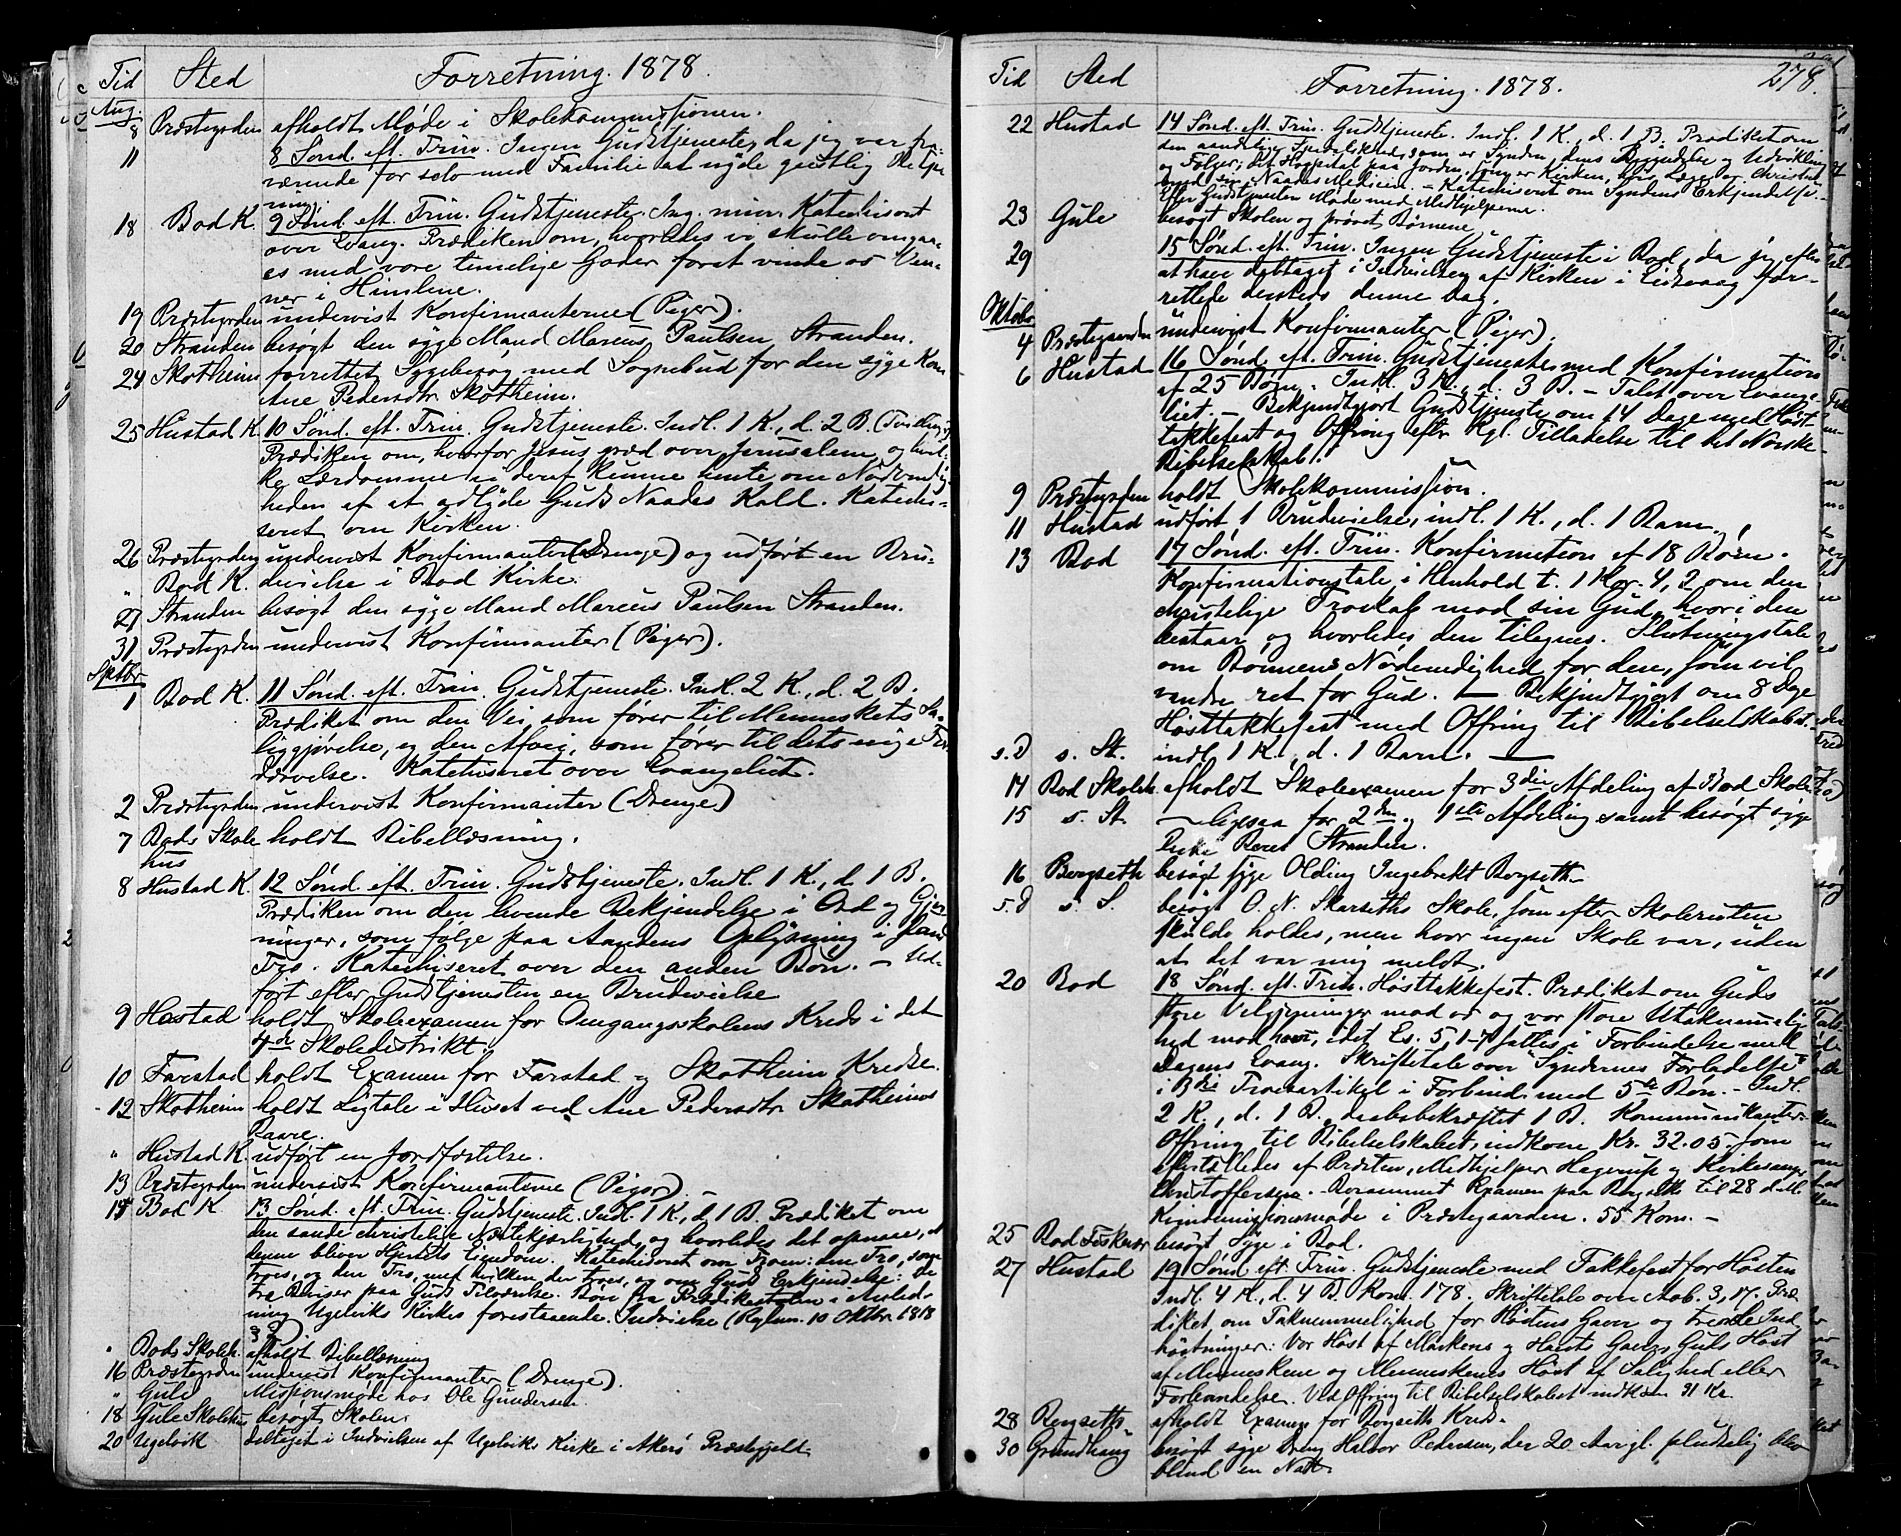 Tid Sted Forretning. 1878.
Aug.
8 Præstegrden afholdt Møde i Skolekommissionen.
11 8 Sønd. eft. Trin. Ingen Gudstjeneste, da jeg var fra-
værende for selv med Familie at nyde geistlig Betje
ning.
18 Bod K. 9 Sønd. eft. Trin. Gudstjeneste. Ing. min. Katechiseret
over Evang. Prædiken om, hvorledes vi skulle omgaa-
es med vore timelige Goder foret vinde os Ven-
ner i Himlene.
19 Præstegrden undervist Konfirmanterne (Piger).
20 Stranden besøgt den syge Mand Marcus Paulsen Stranden.
24 Skotheim forrettet Sygebesøg med Sognebud for den syge Kone
Ane Pedersdtr Skotheim.
25 Hustad K. 10 Sønd. eft. Trin. Gudstjeneste. Indl. 1 K., d. 2 B.
Prædiken om, hvorfor Jesus græd over Jerusalem, og hvil-
ke Lærdomme vi deraf kunne hente om Nødvendig-
heden af at adlyde Guds Naades Kald. Katechi-
seret om Kirken.
26 Præstegrden undervist Konfirmanter (Drenge) og udført en Bru-
" Bod K. devielse i Bod Kirke.
27 Stranden besøgt den syge Mand Marcus Paulsen Stranden.
31 Præstegrden undervist Konfirmanter (Piger).
Septbr
1 Bod K. 11 Sønd. eft. Trin. Gudstjeneste. Indl. 2 K., d. 2 B.
Prædiket om den Vei, som fører til Menneskets Sa-
liggjørelse, og den Afvei, som fører til dets evige For
dærvelse. Katechiseret over Evangeliet.
2 Præstegrden undervist Konfirmanter (Drenge)
7 Bods Skole holdt Bibellæsning.
hus
8 Hustad K. 12 Sønd. eft. Trin. Gudstjeneste. Indl. 1 K., d. 1 B.
Prædiken om den levende Bekjendelse i Ord og Gjer
ninger, som følge paa Aandens Oplysning i sand
Tro. Katechiseret over den anden Bøn. – Ud-
ført efter Gudstjenesten en Brudevielse
9 Hostad holdt Skoleexamen for Omgangsskolens Kreds i det
4de Skoledistrikt.
10 Farstad holdt Examen for Farstad og Skotheim Kredse.
12 Skotheim holdt Ligtale i Huset ved Ane Pedersdtr Skotheims
Baare.
" Hustad K. udført en Jordfæstelse.
13 Præstegrden undervist Konfirmanterne (Piger).
15 Bod K 13 Sønd. eft. Trin. Gudstjeneste. Indl. 1 K., d 1 B. Prædiket om
den sande christelige Næstekjærlighed, og hvorledes det opnaaes, at
denne bliver Hjertets Eiendom. Katechiseret om Troen: den Tro, som
troes, og den Tro, med hvilken der troes, og om Guds Erkjendelse: De
tre Beviser paa Guds Tilværelse. Bøn fra Prædikestolen i Anled-
ning Ugelviks Kirkes forestaaende Indvielse ( 10 Oktbr 1818
" Bods Skoleh. afholdt Bibellæsning
16 Præstegrden undervist Konfirmanter (Drenge).
" Gule Missionsmøde hos Ole Gundersen
18 Gule Skolehus besøgt Skolen.
20 Ugelvik deltaget i Indvielsen af Ugelviks Kirke i Akerø Præstegjeld.
Tid Sted Forretning. 1878. 278.
22 Hustad 14 Sønd. eft. Trin. Gudstjeneste. Indl. 1 K., d. 1 B. Prædiket om
den aandelige Spedalskhed, som er Synden, dens Begyndelse og Udvikling
og Følger; det Hospital paa Jorden, som er Kirken, hvis Læge er Christus
med sin Naades Medicin. – Katechiseret om Syndens Erkjendelse. –
Efter Gudstjenesten Møde med Medhjelperne.
23 Gule besøgt Skolen og prøvet Børnene.
29 15 Sønd. eft. Trin. Ingen Gudstjeneste i Bod, da jeg efter
at have deltaget i Indvielsen af Kirken i Eidsvaag for-
rettede dersteds denne Dag.
Oktober
4 Præstegaarden undervist Konfirmanter (Piger).
6 Hustad 16 Sønd. eft. Trin. Gudstjeneste med Konfirmation
af 25 Børn. Indl. 3 K., d. 3 B. – Talet over Evange-
liet. – Bekjendtgjort Gudstjeneste om 14 Dage med Høst
takkefest og Offring efter Kgl. Tilladelse til det Norske
Bibelselskab.
9 Præstegrden holdt Skolekommission.
11 Hustad udført 1 Brudevielse, indl. 1 K., d. 1 Barn.
13 Bod 17 Sønd. eft. Trin. Konfirmation af 18 Børn.
Konfirmationstale i Henhold t. 1 Kor. 4, 2 om den
christelige Troskab mod sin Gud, hvori den
bestaar, og hvorledes den tilegnes. Slutningstale
om Bønnens Nødvendighed for den, som vil
vandre ret for Gud. – Bekjendtgjort om 8 Dage
Høsttakkefest med Offring til Bibelselskabet.
s. D s. St. indl 1 K., d. 1 Barn. –
14 Bod Skoleh. afholdt Skoleexamen for 3die Afdeling af Bod Skole
15 s. St. – ligesaa for 2den og 1ste Afdeling samt besøgt syge
Enke Beret Stranden.
16 Bergseth besøgt syge Olding Ingebrekt Bergseth
s. D s. S. besøgt O. N. Skarseths Skole, som efter Skoleruten
skulde holdes, men hvor ingen Skole var, uden
at det var mig meldt.
20 Bod 18 Sønd. eft. Trin. Høsttakkefest. Prædiket om Guds
store Velgjerninger mod os og vor store Utaknemmelig
hed mod ham, idet Es. 5, 1-7 sattes i Forbindelse med
Dagens Evang. Skriftetale over "Syndernes Forladelse"
i 3die Troesartikel i Forbind. med 5te Bøn. – Indl.
2 K., d. 1 B., daabsbekræftet 1 B. Kommunikanter.
Offring til Bibelselskabet, indkom Kr. 32.05. som
eftertælledes af Præsten, Medhjelper Hagerup og Kirkesanger
Christoffersen. – Berammet Examen paa Bergseth til 28 d. M.
Kvindemissionsmøde i Præstegaarden. 55 Kom. –
25 Bod Fiskevær besøgt Syge i Bod.
27 Hustad 19 Sønd. eft. Trin. Gudstjeneste med Takkefest for Høsten
Indl. 4 K., d. 4 B. Kom. 178. Skriftetale over Aab. 3, 17. Præ
diket om Taknemmelighed for Høstens Gaver og trende Ind
høstninger: Vor Høst af Markens og Havets Gaver, Guds Høst
af Menneskene og Menneskenes Høst af Salighed eller
Fordømmelse. Ved Offring til Bibelselskabet indkom 91 Kr.
28 Bergseth afholdt Examen for Bergseths Kreds.
30 Grundhaug besøgt syge Dreng Halvor Pedersen, der 20 Aar gl. pludselig blev
blind en Nat.